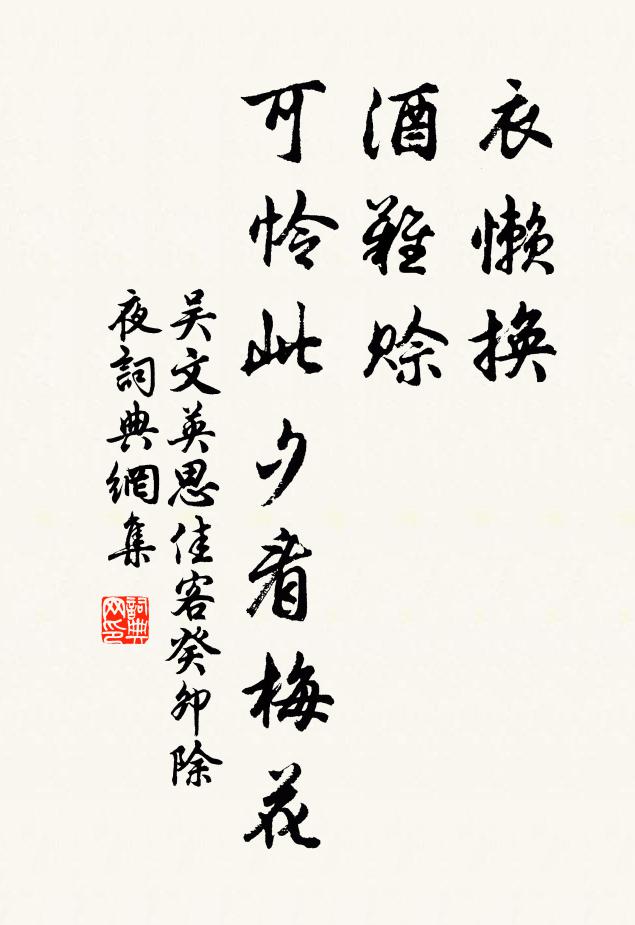 衣懒换
酒難赊
可怜此夕看梅花
吴文英思佳客癸卯除
夜詞典網集
詞典
网印